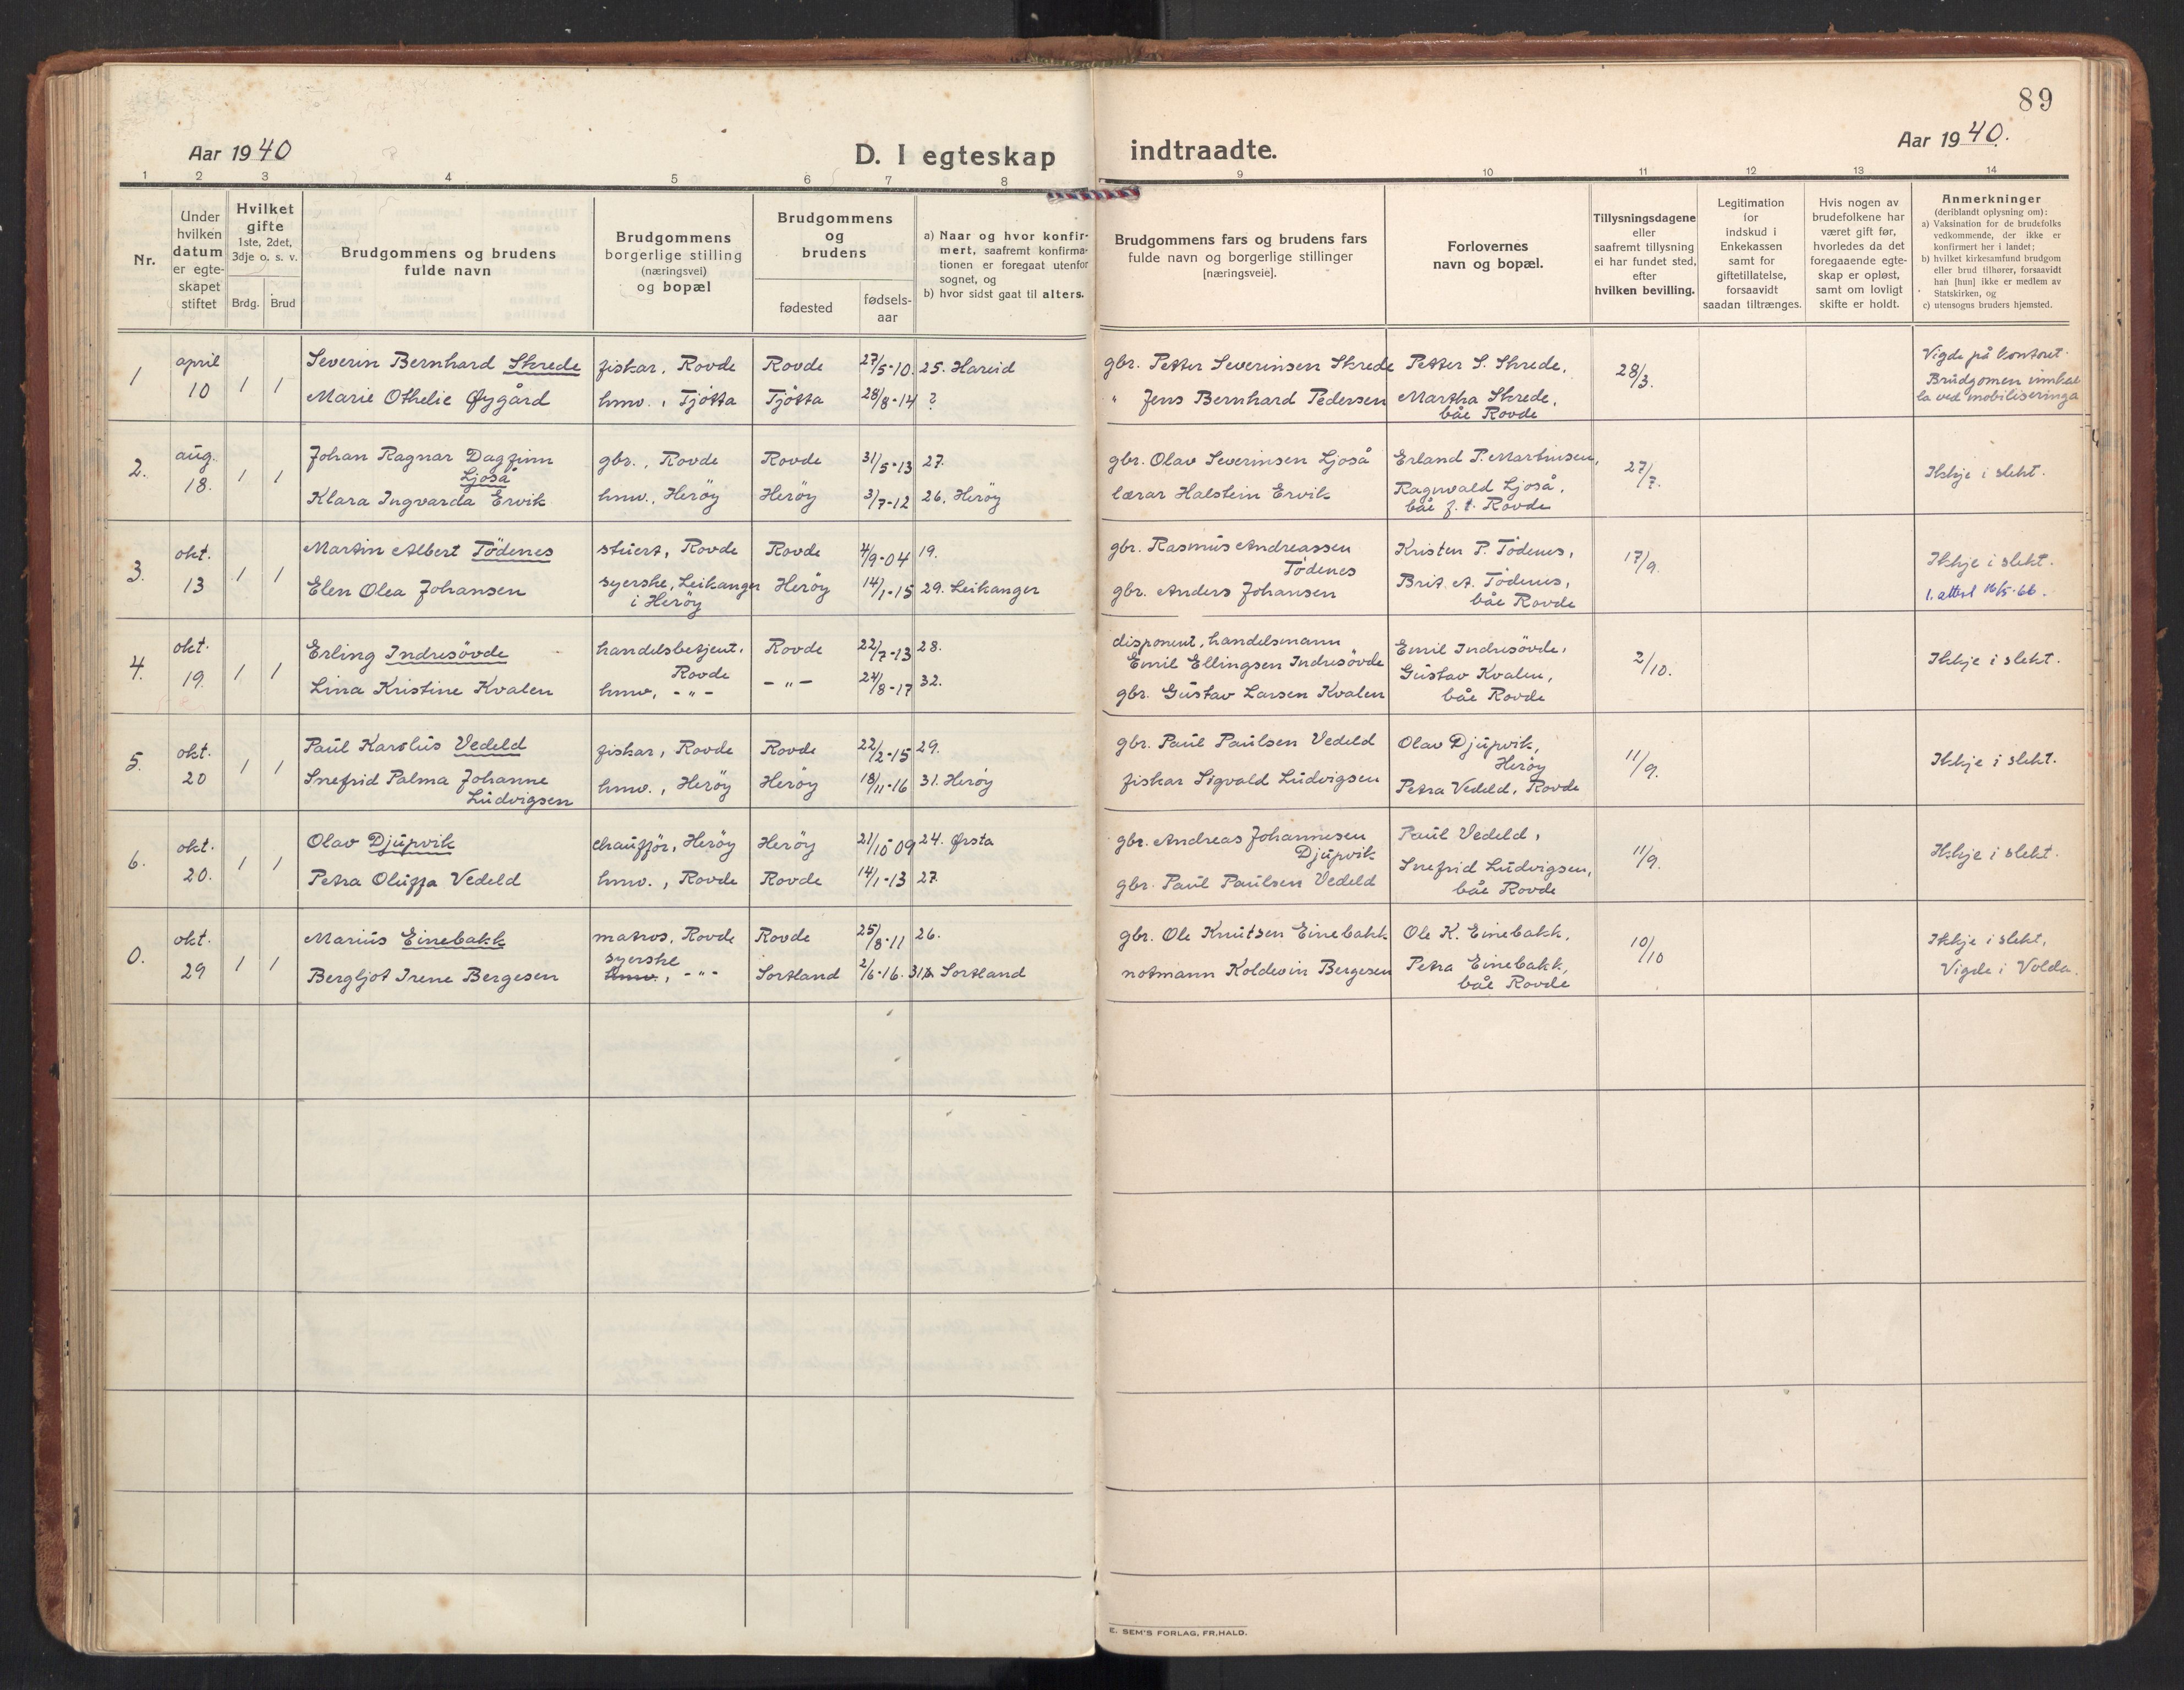 89
Aar 1940
D. I egteskap indtraadte.
Aar 1940.
1 2 3 4 5 6 7 8 9 10 11 12 13 14
Nr.
Under
hvilken
datum
er egte-
skapet
stiftet
Hvilket
gifte
1ste, 2det,
3dje o. s. v.
Brdg. Brud
Brudgommens og brudens
fulde navn
Brudgommens
borgerlige stilling
(næringsvei)
og bopæl
Brudgommens
og
brudens
fødested
fødsels-
aar
a) Naar og hvor konfir-
mert, saafremt konfirma-
tionen er foregaat utenfor
sognet, og
b) hvor sidst gaat til alters.
Brudgommens fars og brudens fars
fulde navn og borgerlige stillinger
[næringsveie].
Forlovernes
navn og bopæl.
Tillysningsdagene
eller
saafremt tillysning
ei har fundet sted,
efter
hvilken bevilling.
Legitimation
for
indskud i
Enkekassen
samt for
giftetillatelse,
forsaavidt
saadan tiltrænges.
Hvis nogen av
brudefolkene har
været gift før,
hvorledes da det
foregaaende egte-
skap er opløst,
samt om lovligt
skifte er holdt.
Anmerkninger
(deriblandt oplysning om):
a) Vaksination for de brudefolks
vedkommende, der ikke er
konfirmert her i landet;
b) hvilket kirkesamfund brudgom
eller brud tilhører, forsaavidt
han [hun] ikke er medlem av
Statskirken, og
c) utensogns bruders hjemsted.
1 april 10 1 1
Severin Bernhard Skrede fiskar, Rovde Rovde 27/5-10. 25. Hareid
Marie Othelie Øygård hmv., Tjötta Tjötta 28/8-14 ?
gbr. Petter Severinsen Skrede
" Jens Bernhard Pedersen
Petter S. Skrede,
Martha Skrede,
båe Rovde
28/3.
Vigde på kontoret.
Brudgomen innkal
la ved mobiliseringa
2. aug. 18. 1 1
Johan Ragnar Dagfinn
Ljoså
gbr., Rovde Rovde 31/5-13 27.
Klara Ingvarda Ervik hmv., Heröy Heröy 3/7-12 26, Heröy
gbr. Olav Severinsen Ljoså
lærar Halstein Ervik
Erland P. Martinsen,
Ragnvald Ljoså,
båe f. t. Rovde
27/7.
Ikkje i slekt.
3. okt. 13 1 1
Martin Albert Tödenes stuert, Rovde Rovde 4/9-04 19.
Elen Olea Johansen syerske, Leikanger
i Heröy
Heröy 14/1-15 29. Leikanger
gbr. Rasmus Andreassen
Tödenes
gbr. Anders Johansen
Kristen P. Tödenes,
Brit A. Tödenes,
båe Rovde
17/9.
Ikkje i slekt.
1. attest 16/5-66.
4. okt. 19. 1 1
Erling Indresövde handelsbetjent,
Rovde
Rovde 22/7-13 28.
Lina Kristine Kvalen hmv, -"- -"- 24/8-17 32.
disponent, handelsmann
Emil Ellingsen Indresövde
gbr. Gustav Larsen Kvalen
Emil Indresövde,
Gustav Kvalen,
båe Rovde
2/10.
Ikkje i slekt.
5. okt. 20 1 1
Paul Karolus Vedeld fiskar, Rovde Rovde 22/2-15 29.
Snefrid Palma Johanne
Ludvigsen
hmv., Heröy Heröy 18/11-16 31. Heröy
gbr. Paul Paulsen Vedeld
fiskar Sigvald Ludvigsen
Olav Djupvik,
Heröy
Petra Vedeld, Rovde
11/9.
Ikkje i slekt.
6. okt. 20. 1 1
Olav Djupvik chauffør, Heröy Heröy 21/10 09 24. Ørsta
Petra Oluffa Vedeld hmv., Rovde Rovde 14/1-13 27.
gbr. Andreas Johannesen
Djupvik
gbr. Paul Paulsen Vedeld
Paul Vedeld,
Snefrid Ludvigsen,
båe Rovde
11/9.
Ikkje i slekt.
0. okt. 29 1 1
Marius Einebakk matros, Rovde Rovde 25/8-11 26.
Bergljot Irene Bergesen syerske
hmv., -"- Sortland 2/6-16. 31. Sortland
gbr. Ole Knutsen Einebakk
notmann Koldevin Bergesen
Ole K. Einebakk,
Petra Einebakk,
båe Rovde
10/10
Ikkje i slekt,
Vigde i Volda.
E. SEM'S FORLAG, FR.HALD.